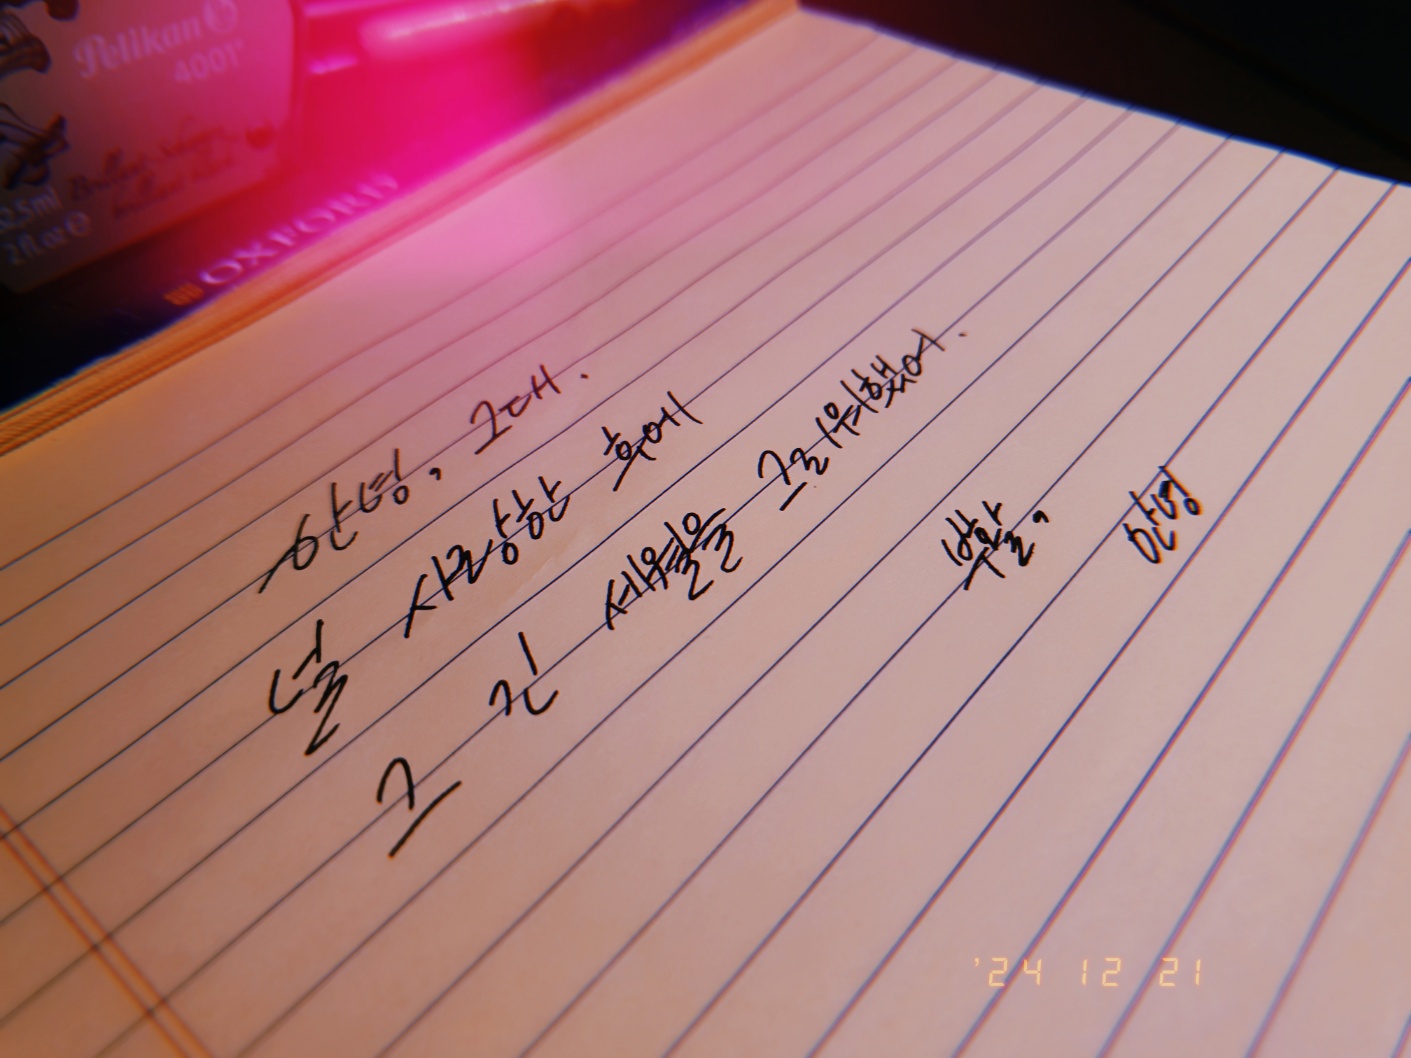 Pelikan
4001
62.5ml
2fl.oz
OXFORD
안녕, 그대.
널 사랑한 후에
그 긴 세월을 그리워했어.
부활, 안녕
'24 12 21